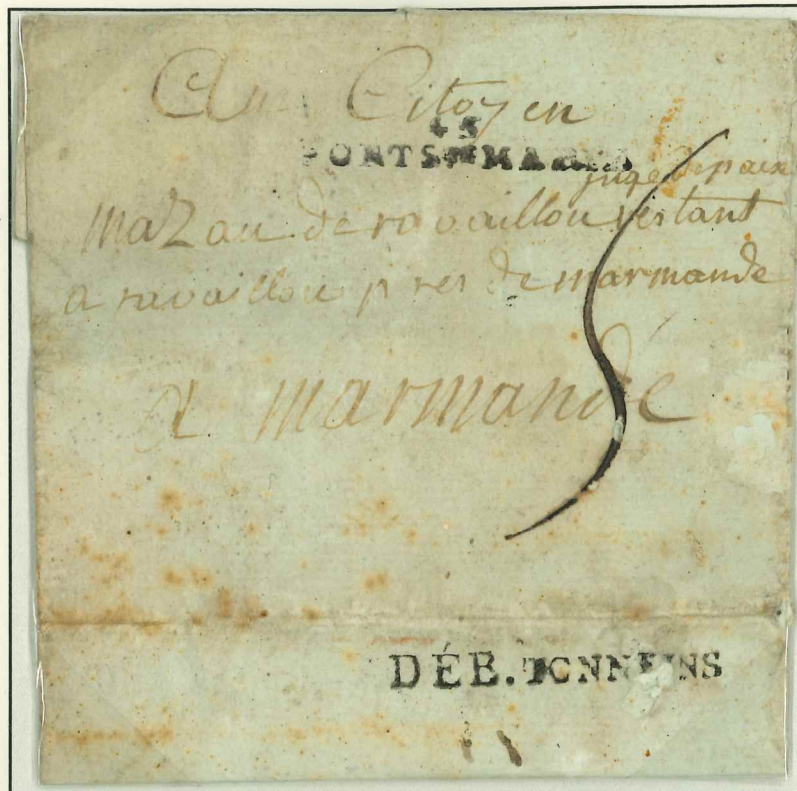 Au Citoyen
45
PORT Ste MARIE
juge de paix
Mazau de ravaillou restant
a ravaillou pres de marmande
a marmande
5
DÉB. TONNEINS